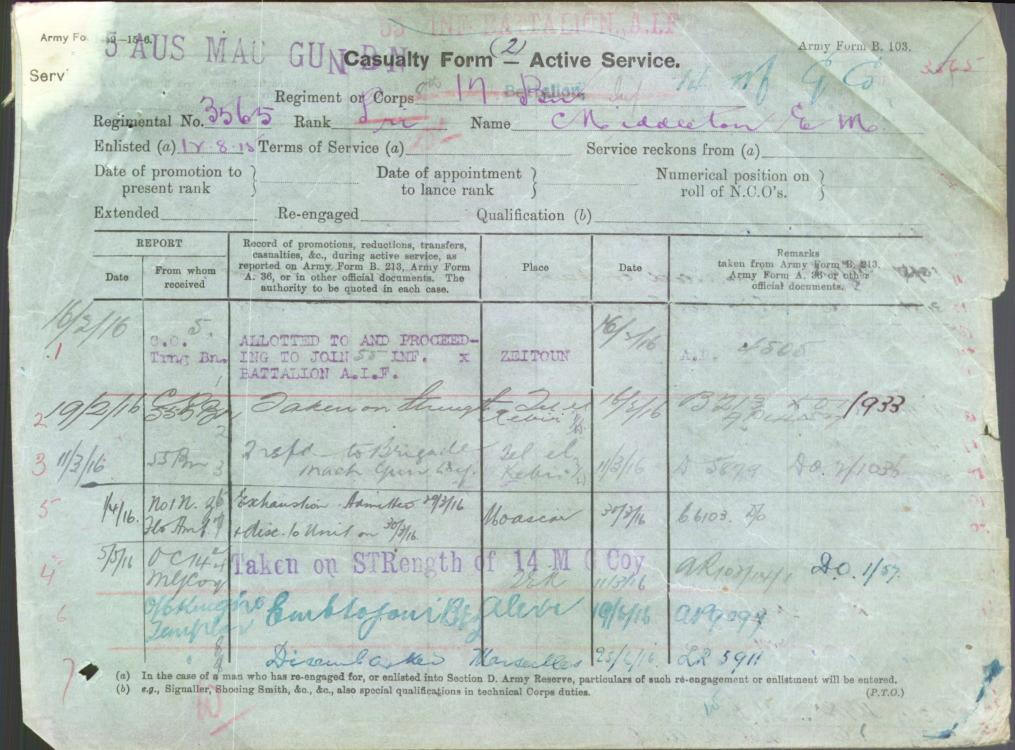 55 INF BATTALION. A.I.F
5 AUS MAC GUN BN
Army Fo
Serv
Casualty Form (2) — Active Service.
Army Form B. 103.
3565
14 M G C
Regiment or Corps 17 Battalion
Regimental No. 3565 Rank Pte Name Middleton E M.
Enlisted (a) 12.8.15 Terms of Service (a) Service reckons from (a)
Date of promotion to present rank } Date of appointment to lance rank } Numerical position on roll of N.C.O's. }
Extended Re-engaged Qualification (b)
REPORT
Date
From whom received
Record of promotions, reductions, transfers, casualties, &c., during active service, as reported on Army Form B. 213, Army Form A. 36, or in other official documents. The authority to be quoted in each case.
Place
Date
Remarks taken from Army Form B. 213, Army Form A. 36 or other official documents.
1 16/2/16 C.O. 5. Trng Bn. ALLOTTED TO AND PROCEEDING TO JOIN 55 INF. x BATTALION A.I.F. ZEITOUN 16/2/16 4505
2 19/2/16 55th Bn Taken on Strength Tel el Kebir 16/2/16 B213 1933
3 11/3/16 55 Bn 3 to Brigade Mach Gun Coy. Tel el Kebir 11/3/16 5879 DO.
5 1/4/16. No 1 N. Z Exhaustion. Admitted 29/3/16 + disc. to Unit on 30/3/16. Moascar 30/3/16 B6103.
4 5/5/16 OC 14th M G Coy Taken on STRength of 14 M G Coy 16 DO. 1/57
6 Templar Emb to join BEF Alexa 19/6/16
7 Disembarked Marseilles 25/6/16 LR 5911
(a) In the case of a man who has re-engaged for, or enlisted into Section D. Army Reserve, particulars of such re-engagement or enlistment will be entered.
(b) e.g., Signaller, Shoeing Smith, &c., &c., also special qualifications in technical Corps duties.
(P.T.O.)